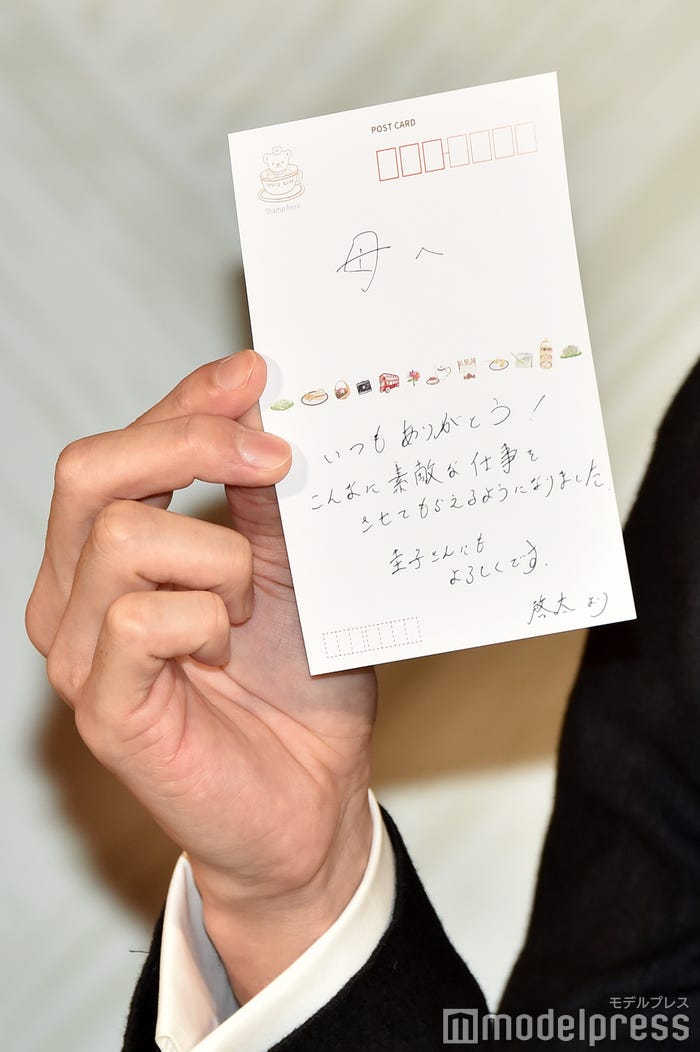 POST CARD
Stamp here
母へ
いつもありがとう!
こんなに素敵な仕事を
させてもらえるようになりました.
圭子さんにも
よろしくです.
啓太より
モデルプレス
modelpress